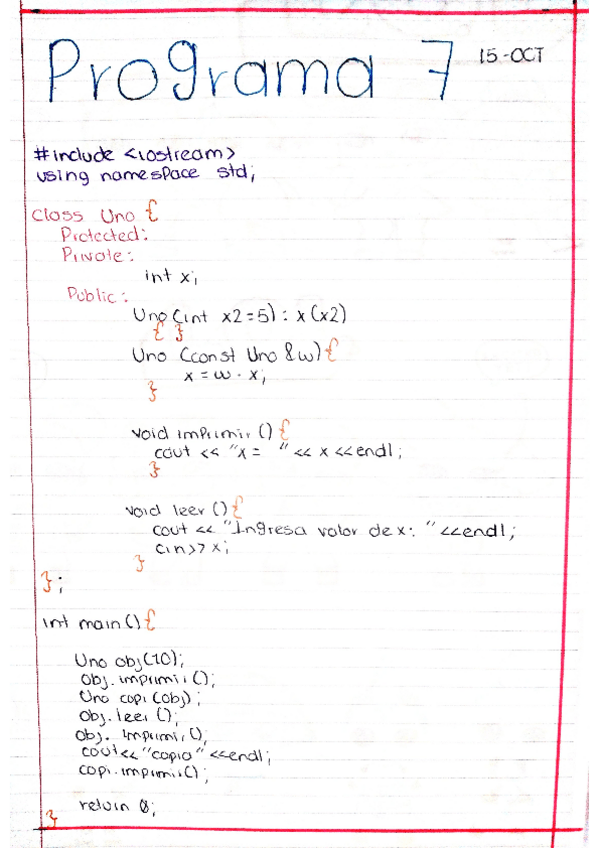 Programa 7
15-OCT
#include <iostream>
using namespace std;
Class Uno {
Protected:
Private:
int x;
Public:
Uno (int x2=5) : x (x2)
{ }
Uno (const Uno &w) {
x = w . x;
}
void imprimir () {
cout << "x = " << x << endl;
}
void leer () {
cout << "Ingresa valor de x: " << endl;
cin >> x;
}
};
int main () {
Uno obj(10);
obj. imprimir ();
Uno copi (obj);
obj. leer ();
obj. imprimir ();
cout << "copia" << endl;
copi. imprimir();
return 0;
}